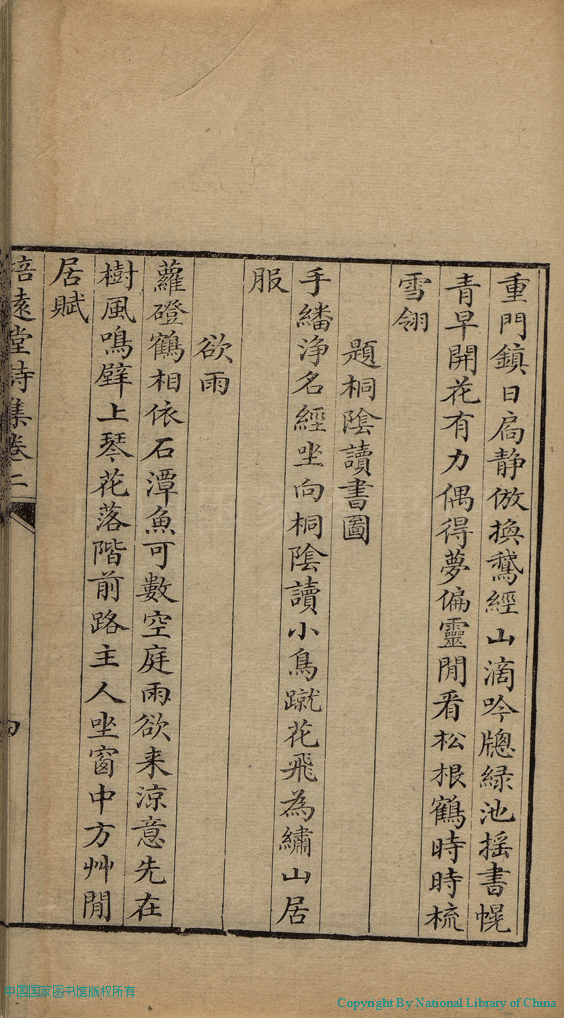 重門鎮日扃静倣換鵞經山滴吟牕綠池摇書幌
青早開花有力偶得夢偏靈閒看松根鶴時時梳
雪翎
題桐陰讀書圖
手繙浄名經坐向桐陰讀小鳥蹴花飛為繡山居
服
欲雨
蘿磴鶴相依石潭魚可數空庭雨欲来涼意先在
樹風鳴壁上琴花落階前路主人坐窗中方艸閒
居賦
培遠堂詩集卷二
四
中国国家图书馆版权所有
Copyright By National Library of China